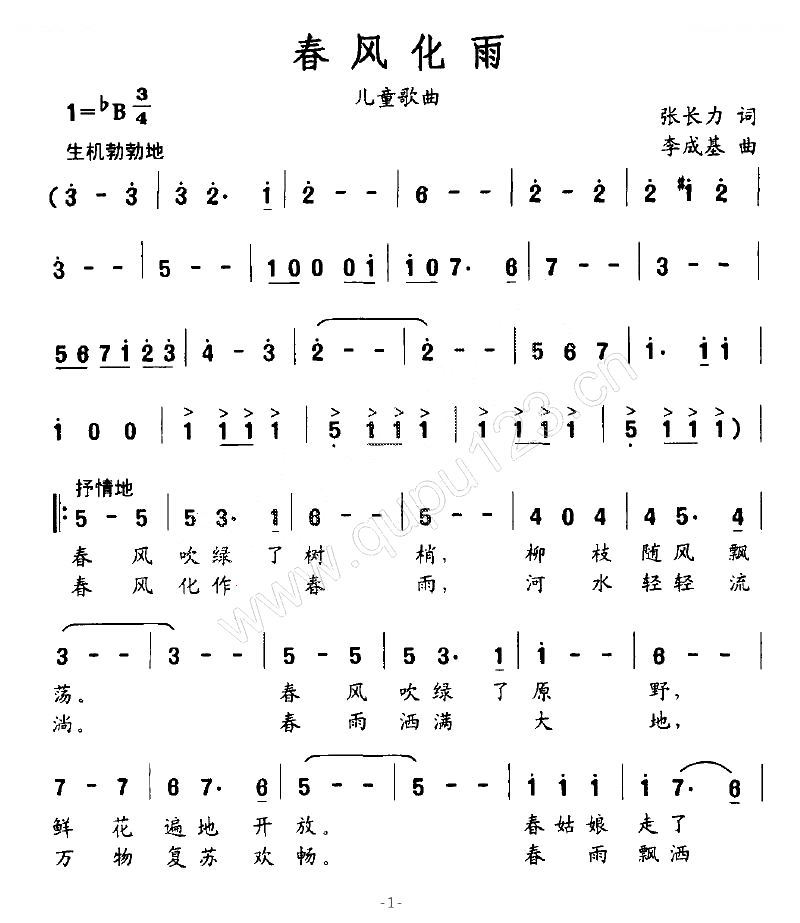 春风化雨
儿童歌曲
1=♭B 3/4
张长力 词
生机勃勃地
李成基 曲
(3̇ - 3̇ | 3̇ 2̇· 1̇ | 2̇ - - | 6 - - | 2̇ - 2̇ | 2̇ #1̇ 2̇ |
3̇ - - | 5 - - | 1̇ 0 0 0 0 1̇ | 1̇ 0 7· 6 | 7 - - | 3 - - |
5 6 7 1̇ 2̇ 3̇ | 4̇ - 3̇ | 2̇ - - | 2̇ - - | 5 6 7 | 1̇· 1̇ 1̇ |
1̇ 0 0 | 1 1 1 1 | 5̣ 1 1 1 | 1 1 1 1 | 5̣ 1 1 1 ) |
抒情地
‖: 5 - 5 | 5 3· 1 | 6 - - | 5 - - | 4 0 4 | 4 5· 4 |
春 风 吹 绿 了 树 梢, 柳 枝 随 风 飘
春 风 化 作 春 雨, 河 水 轻 轻 流
3 - - | 3 - - | 5 - 5 | 5 3· 1 | 1̇ - - | 6 - - |
荡。 春 风 吹 绿 了 原 野,
淌。 春 雨 洒 满 大 地,
7 - 7 | 6 7· 6 | 5 - - | 5 - - | 1̇ 1̇ 1̇ | 1̇ 7· 6 |
鲜 花 遍 地 开 放。 春 姑 娘 走 了
万 物 复 苏 欢 畅。 春 雨 飘 洒
www.qupu123.cn
-1-